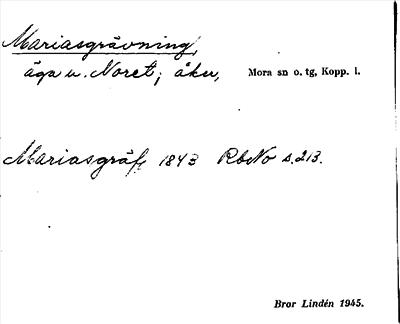 Mariasgrävning,
äga u. Noret; åker, Mora sn o. tg, Kopp. l.
Mariasgräf, 1843 RbNo s. 213.
Bror Lindén 1945.